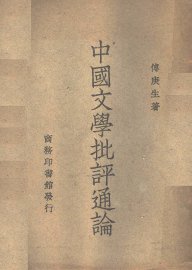 傅庚生著
中國文學批評通論
商務印書館發行